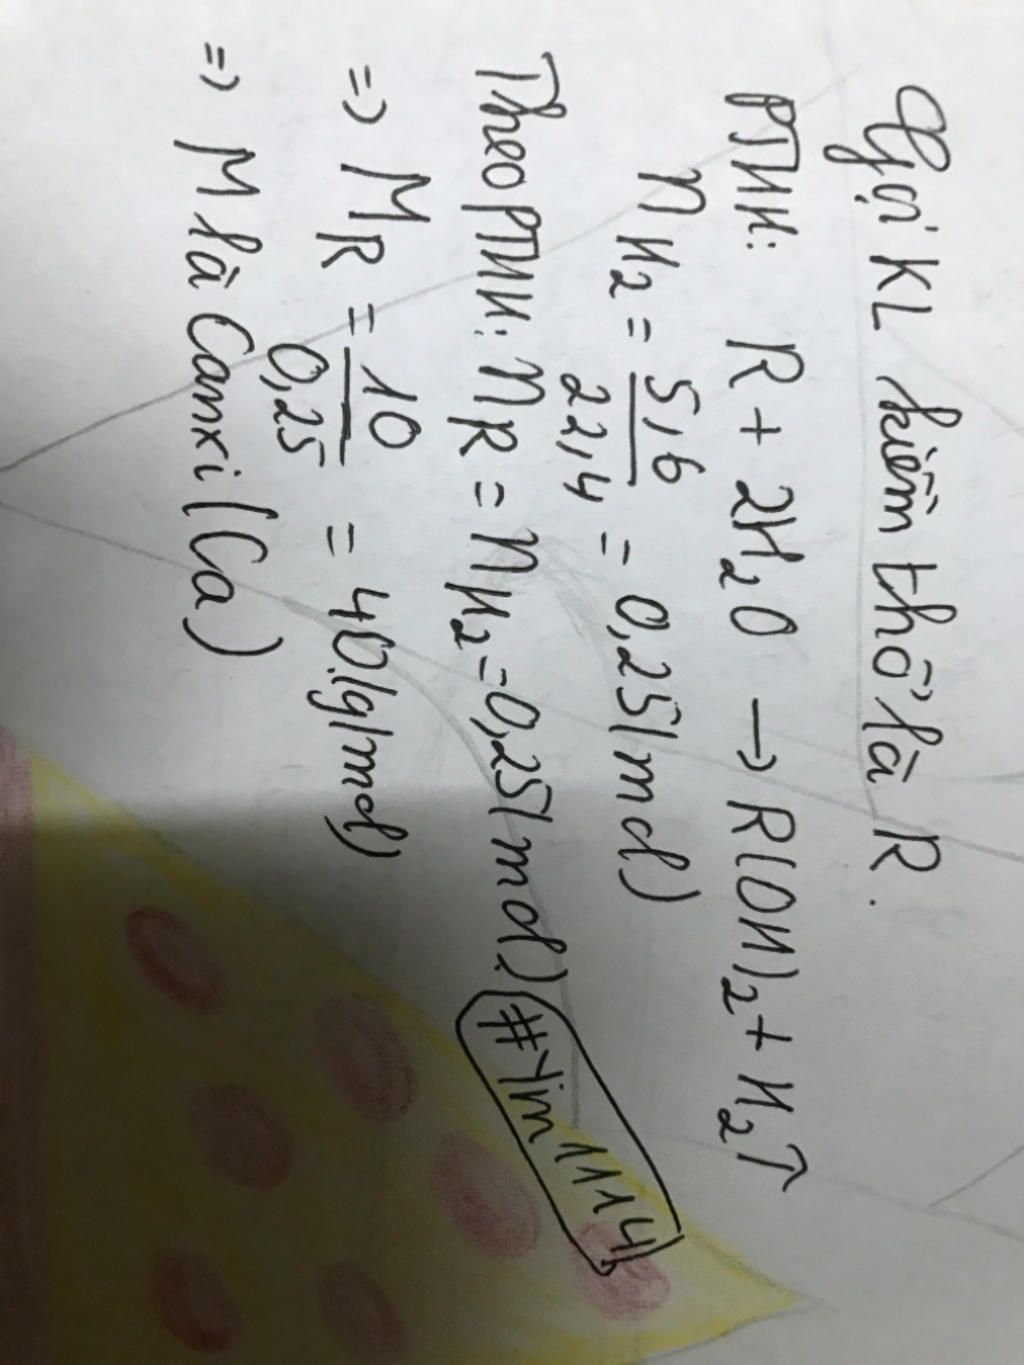 Gọi KL kiềm thổ là R.
PTHH: R + 2H₂O → R(OH)₂ + H₂↑
nH₂ = 5,6/22,4 = 0,25(mol)
Theo PTHH: nR = nH₂ = 0,25(mol)
#Yjm1114
=> MR = 10/0,25 = 40(g/mol)
=> M là Canxi (Ca)